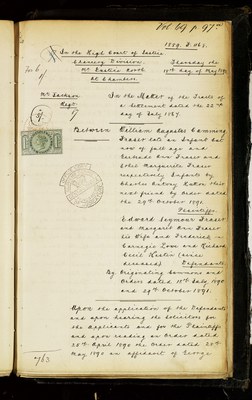 Vol. 69 p. 97
In the High Court of Justice
1889. F. No.
Chancery Division.
Thursday the
Mr Justice North
19th day of May
At Chambers.
Mr Jackson
Regr.
In the Matter of the Trusts of
a Settlement dated the 23rd
day of July 1887.
Between William
Fraser late an Infant but
now of full age and
Gertrude Ann Fraser and
Ethel Marguerite Fraser
respectively Infants by
Charles Antony
next friend by Order dated
the 29th October 1890
Plaintiffs
Edward Seymour Fraser
and Margaret Ann Fraser
his Wife and Frederick
Carnegie Lowe and Richard
Cecil
deceased) Defendants.
By Originating Summons and
Orders dated 15th July 1890
and 29th October 1891.
Upon the application of the Defendants
and upon hearing the Solicitors for
the Applicants and for the Plaintiffs
and upon reading an Order dated
28th April 1890 the Order dated 20th
May 1890 an affidavit of George
763